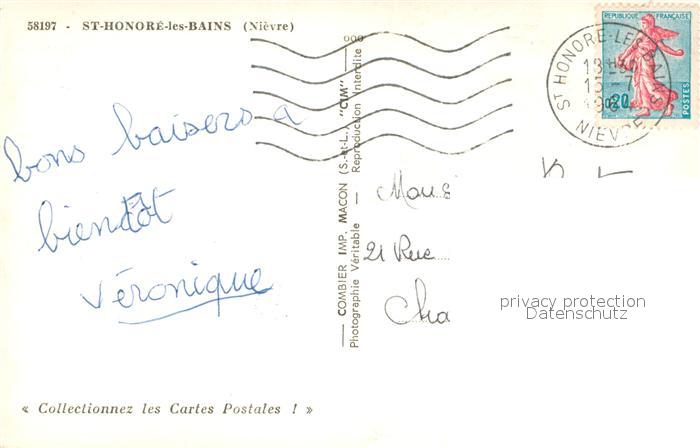 58197 - ST-HONORÉ-les-BAINS (Nièvre)
REPUBLIQUE FRANÇAISE
0,20
POSTES
ST HONORE-LES-BAINS
NIEVRE
bons baisers a
bientôt
Véronique
COMBIER IMP. MACON (S.-et-L.) "CIM"
Photographie Véritable - Reproduction Interdite
21 Rue
Cha
privacy protection
Datenschutz
« Collectionnez les Cartes Postales ! »